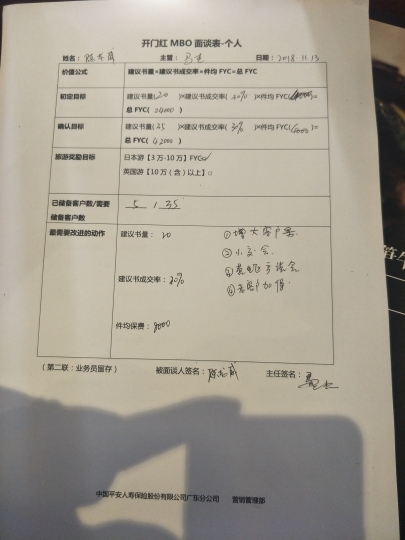 开门红 MBO 面谈表-个人
姓名： 主管： 日期：2018.11.13
价值公式 建议书量×建议书成交率×件均 FYC=总 FYC
初定目标 建议书量(20 )×建议书成交率( 20% )×件均 FYC( )=
总 FYC( 24000 )
确认目标 建议书量(35 )×建议书成交率( 30% )×件均 FYC(6000 )=
总 FYC( 42000 )
旅游奖励目标 日本游【3 万-10 万】FYC
英国游【10 万（含）以上】□
已储备客户数/需要储备客户数 5 / 35
最需要改进的动作 建议书量：20
①增大客户量
②小交会
建议书成交率：30%
④老客户加保
件均保费：8000
（第二联：业务员留存） 被面谈人签名： 主任签名：
中国平安人寿保险股份有限公司广东分公司 营销管理部